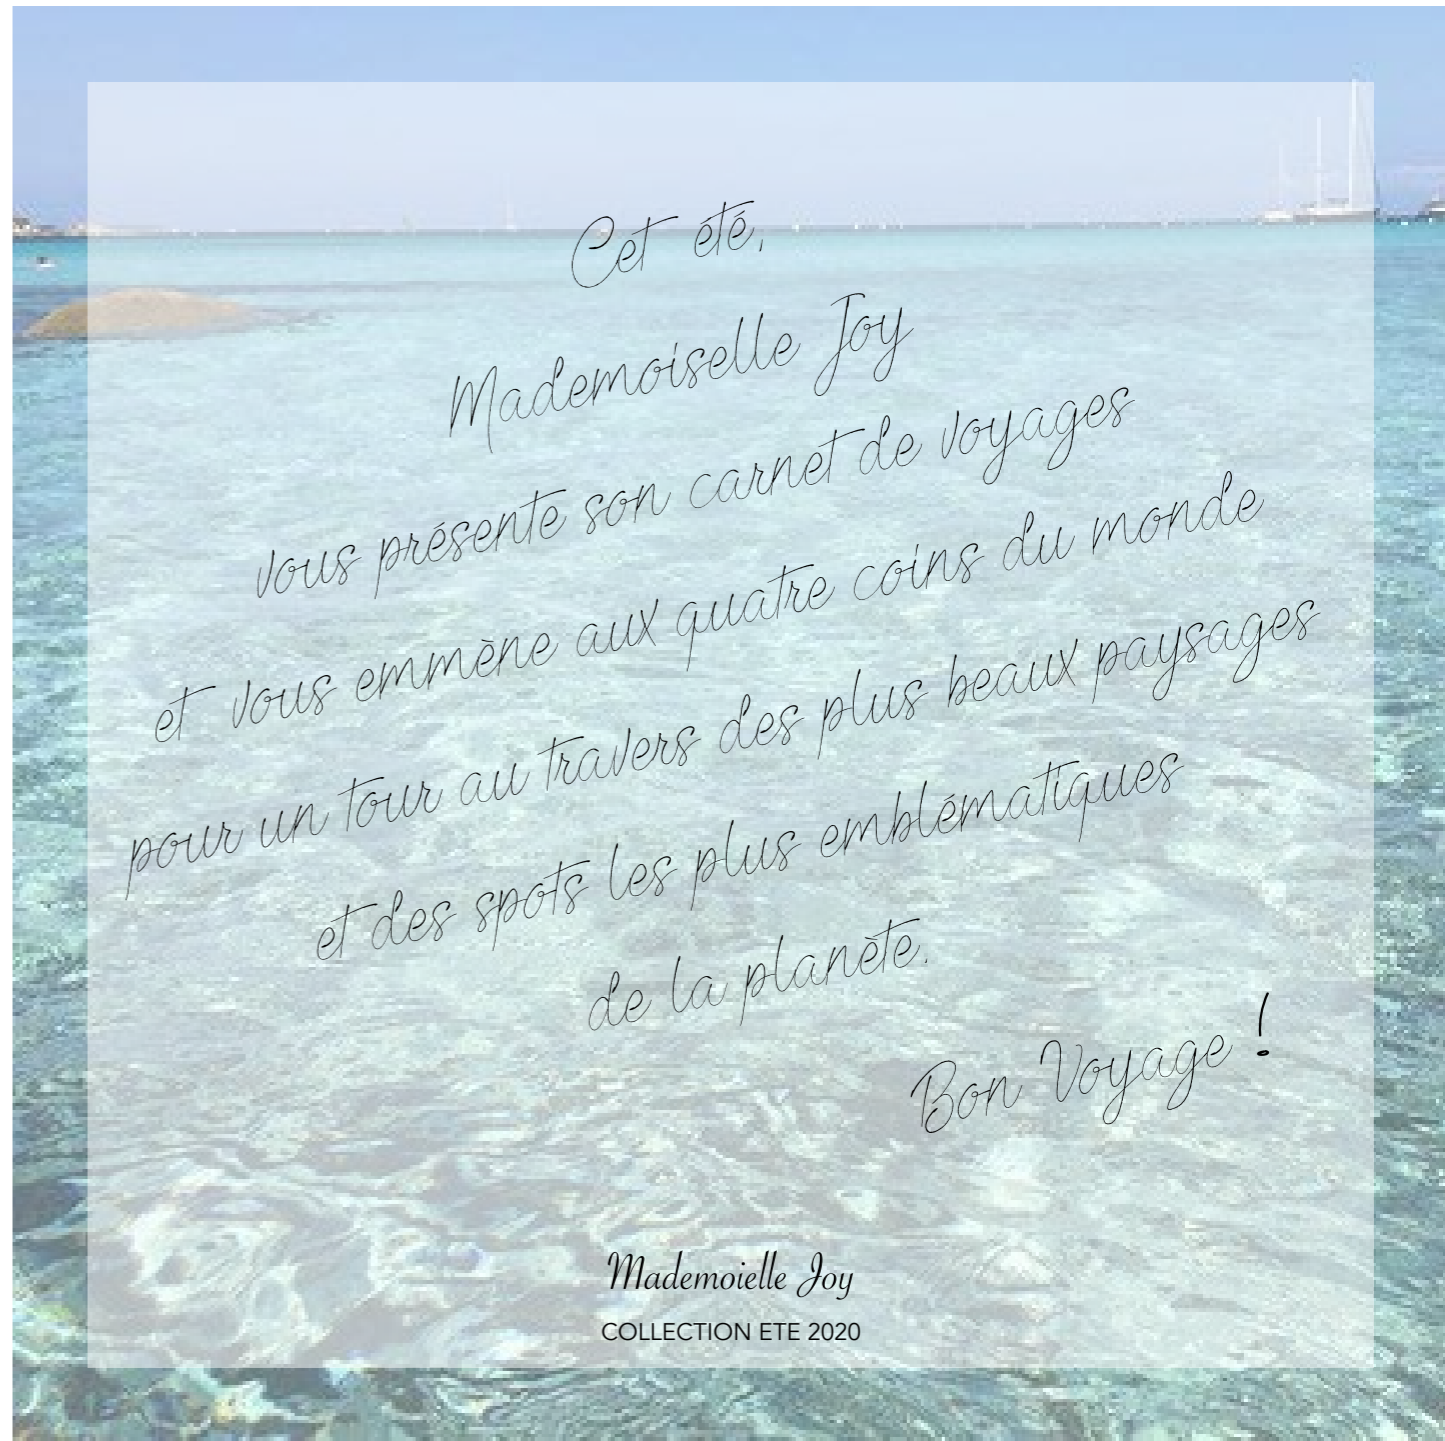 Cet été,
Mademoiselle Joy
vous présente son carnet de voyages
et vous emmène aux quatre coins du monde
pour un tour au travers des plus beaux paysages
et des spots les plus emblématiques
de la planète.
Bon Voyage !
Mademoielle Joy
COLLECTION ETE 2020